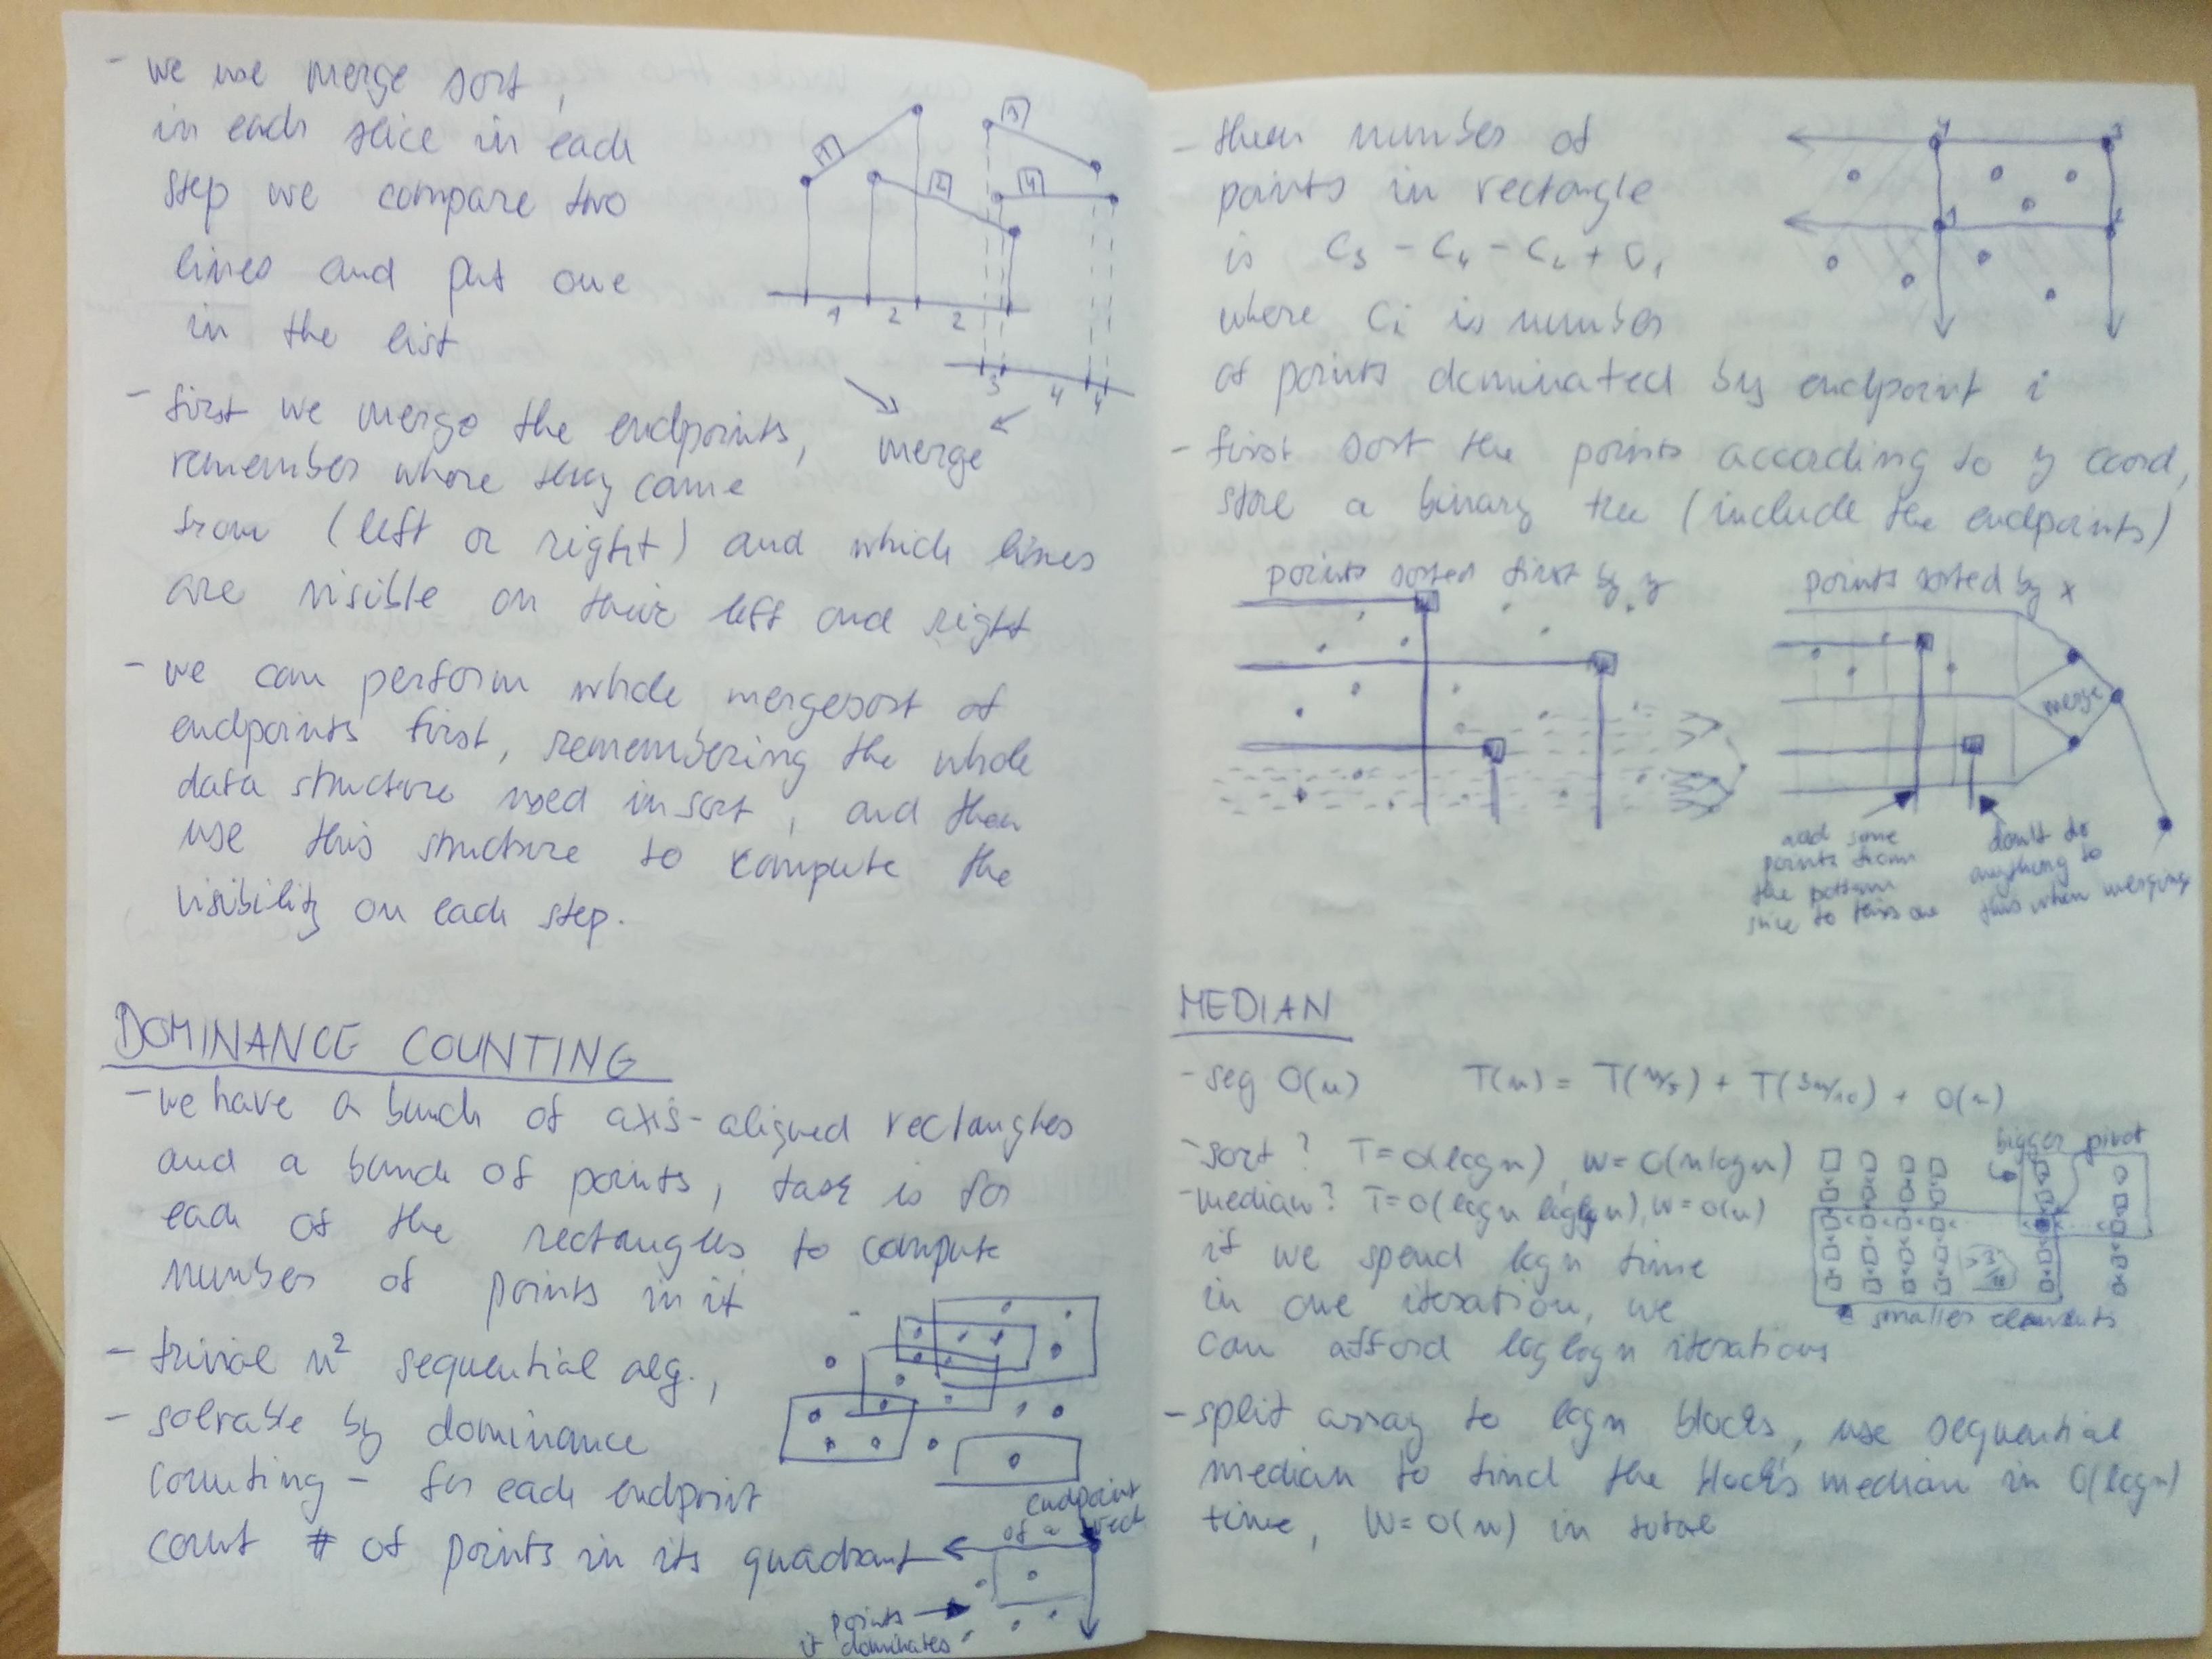 - we use merge sort,
in each slice in each
step we compare two
lines and put one
in the list
1
2
3
4
1 2 2
3 4 4
merge
- first we merge the endpoints,
remember where they came
from (left or right) and which lines
are visible on their left and right
- we can perform whole mergesort of
endpoints first, remembering the whole
data structure used in sort, and then
use this structure to compute the
visibility on each step.
DOMINANCE COUNTING
- we have a bunch of axis-aligned rectangles
and a bunch of points, task is for
each of the rectangles to compute
number of points in it
- trivial n² sequential alg.,
- solvable by dominance
counting - for each endpoint
count # of points in its quadrant
endpoint
of a rect
points
it dominates
- then number of
points in rectangle
is C₃ - C₄ - C₂ + C₁
where Ci is number
of points dominated by endpoint i
4 3
1 2
- first sort the points according to y coord,
store a binary tree (include the endpoints)
points sorted first by y
points sorted by x
merge
add some
points from
the bottom
slice to this one
don't do
anything to
this when merging
MEDIAN
- seq O(n) T(n) = T(n/5) + T(3n/10) + O(n)
- sort? T=O(logn), W=O(nlogn)
- median? T=O(logn loglogn), W=O(n)
if we spend logn time
in one iteration, we
can afford loglogn iterations
bigger pivot
> 3/10
smaller elements
- split array to logn blocks, use sequential
median to find the block's median in O(logn)
time, W=O(n) in total